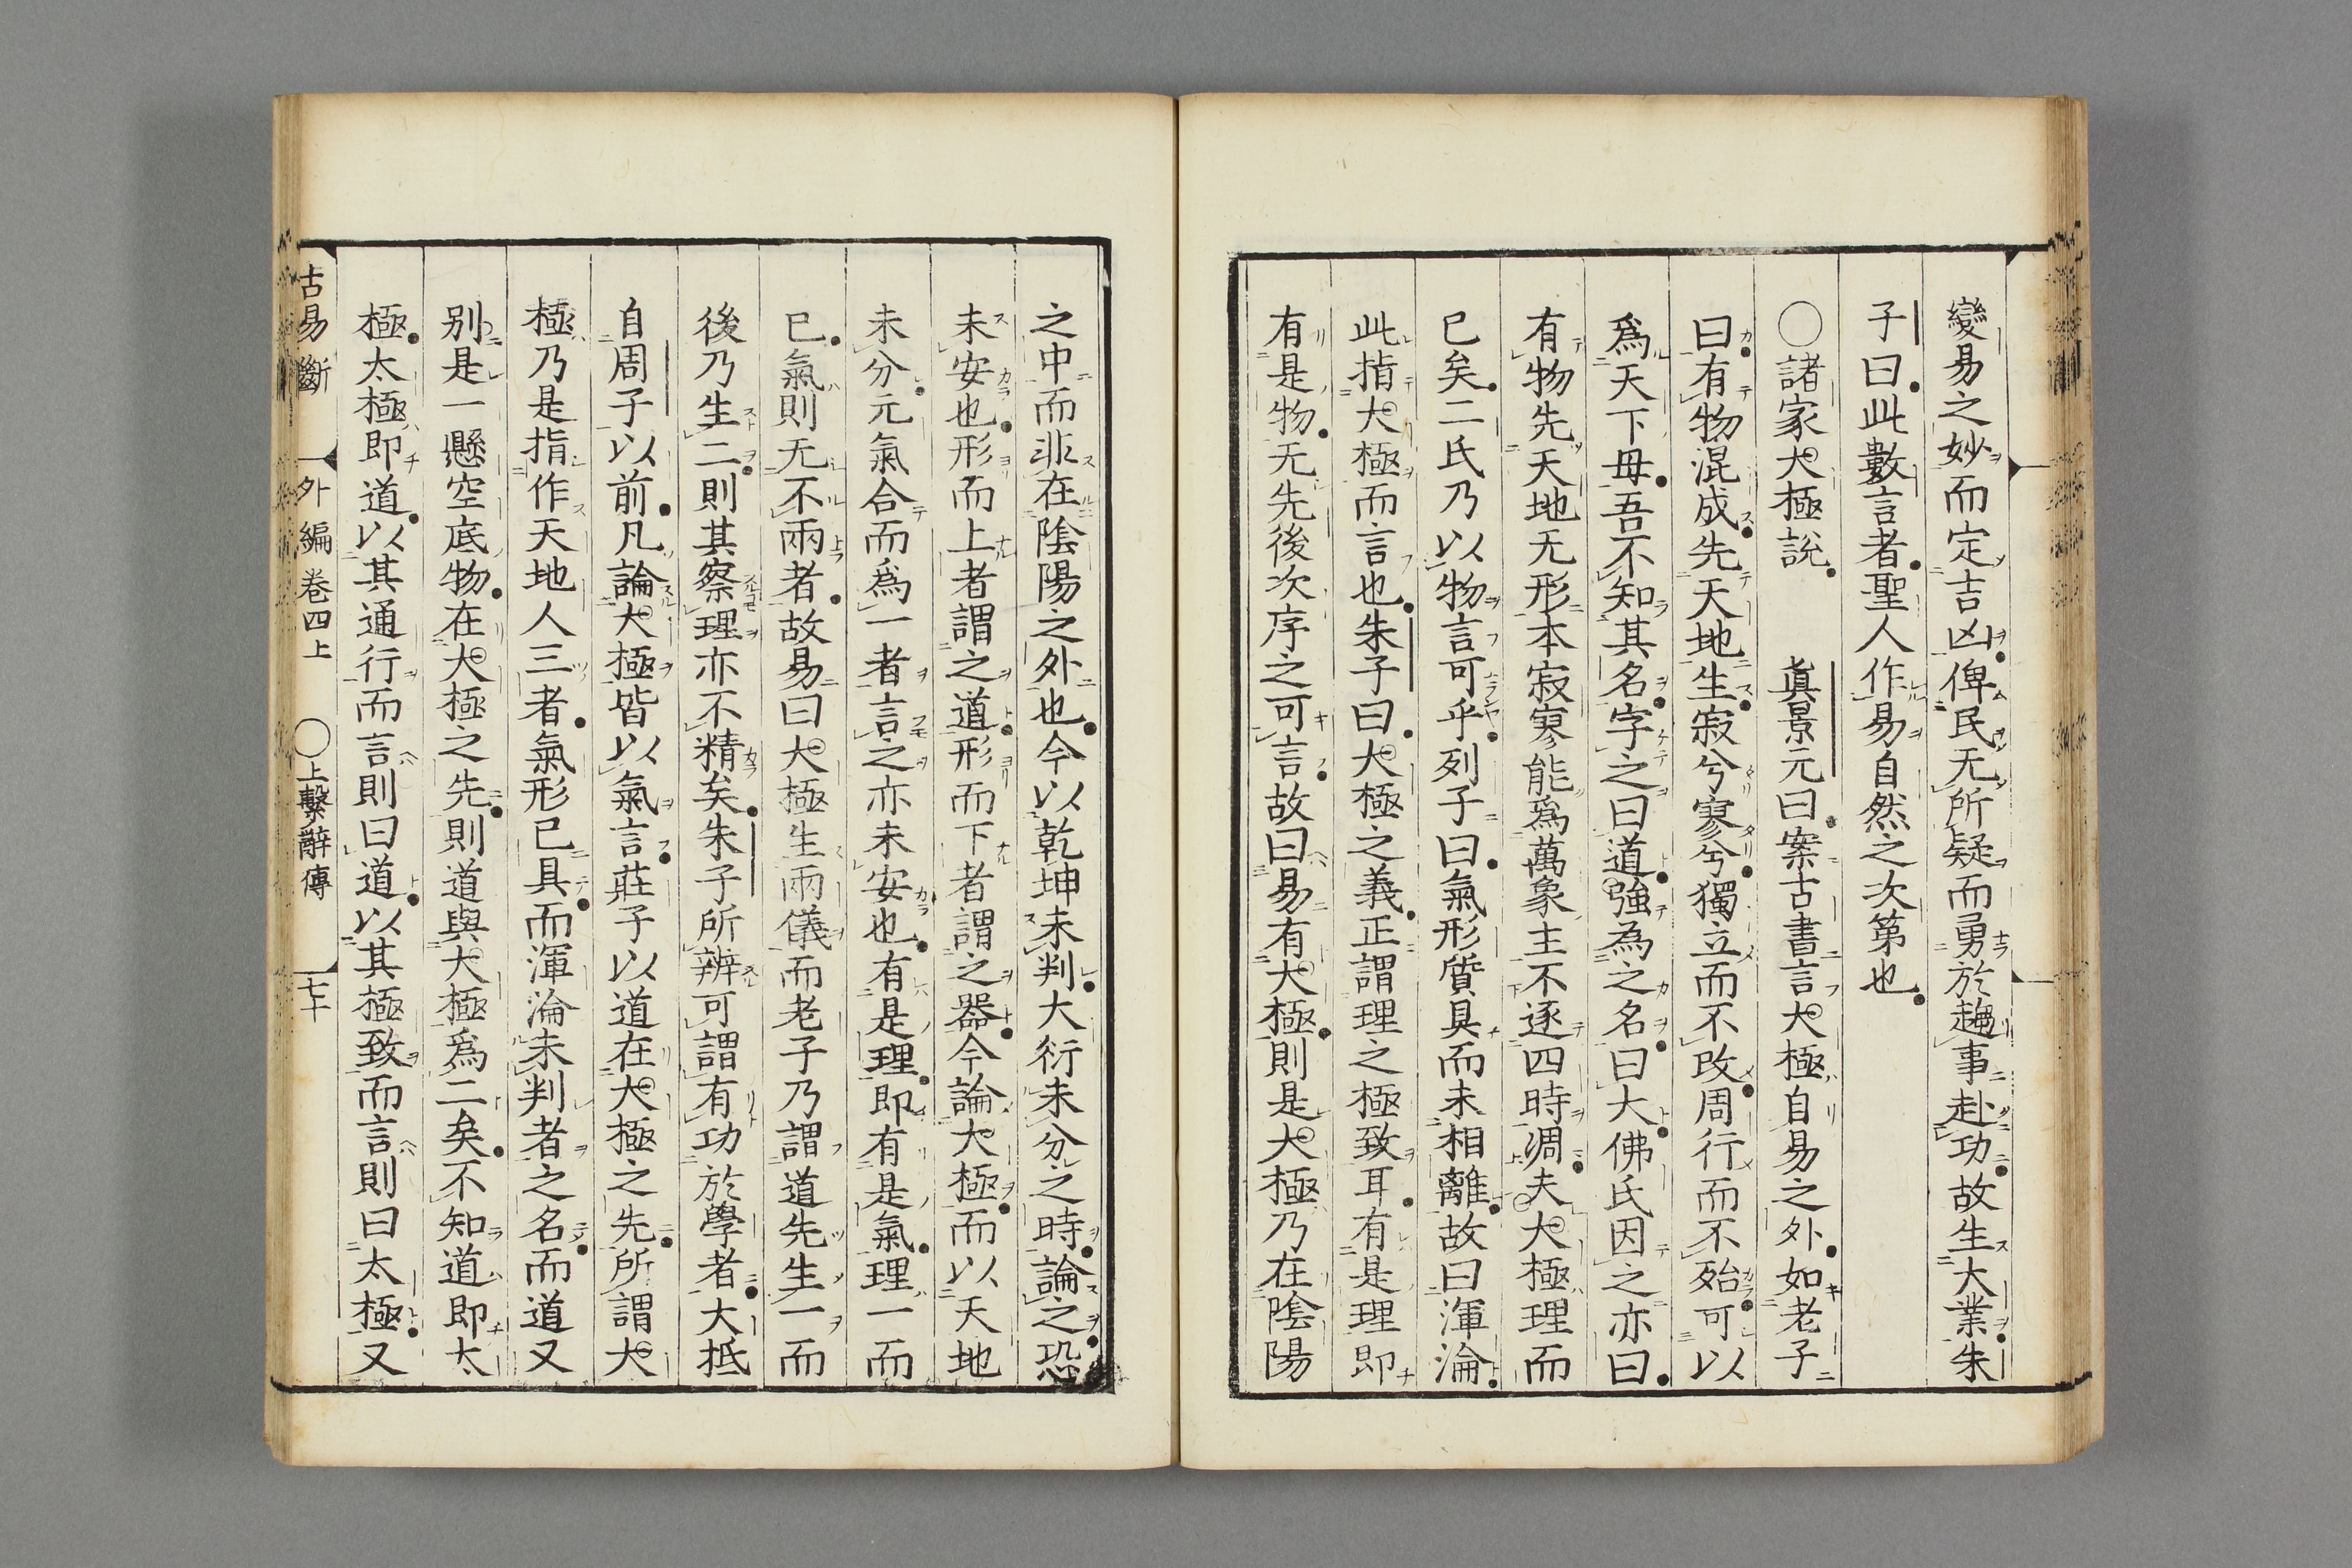 變易之妙而定吉凶俾民无所疑而勇於趨事赴功故生大業朱
子曰此數言者聖人作易自然之次第也
○諸家太極説　眞景元曰案古書言太極自易之外如老子
曰有物混成先天地生寂兮寥兮獨立而不改周行而不殆可以
爲天下毋吾不知其名字之曰道強為之名曰大佛氏因之亦曰
有物先天地无形本寂寥能爲萬象主不逐四時凋夫太極理而
已矣二氏乃以物言可乎列子曰氣形質具而未相離故曰渾淪
此指太極而言也朱子曰太極之義正謂理之極致耳有是理即
有是物无先後次序之可言故曰易有太極則是太極乃在陰陽
之中而非在陰陽之外也今以乾坤未判大衍未分之時論之恐
未安也形而上者謂之道形而下者謂之器今論太極而以天地
未分元氣合而爲一者言之亦未安也有是理即有是氣理一而
已氣則无不兩者故易曰太極生兩儀而老子乃謂道先生一而
後乃生二則其察理亦不精矣朱子所辨可謂有功於學者大抵
自周子以前凡論太極皆以氣言莊子以道在太極之先所謂太
極乃是指作天地人三者氣形已具而渾淪未判者之名而道又
别是一懸空底物在太極之先則道與太極爲二矣不知道即太
極太極即道以其通行而言則曰道以其極致而言則曰太極又
古易斷　外編　卷四上　○上繫辭傳　七十